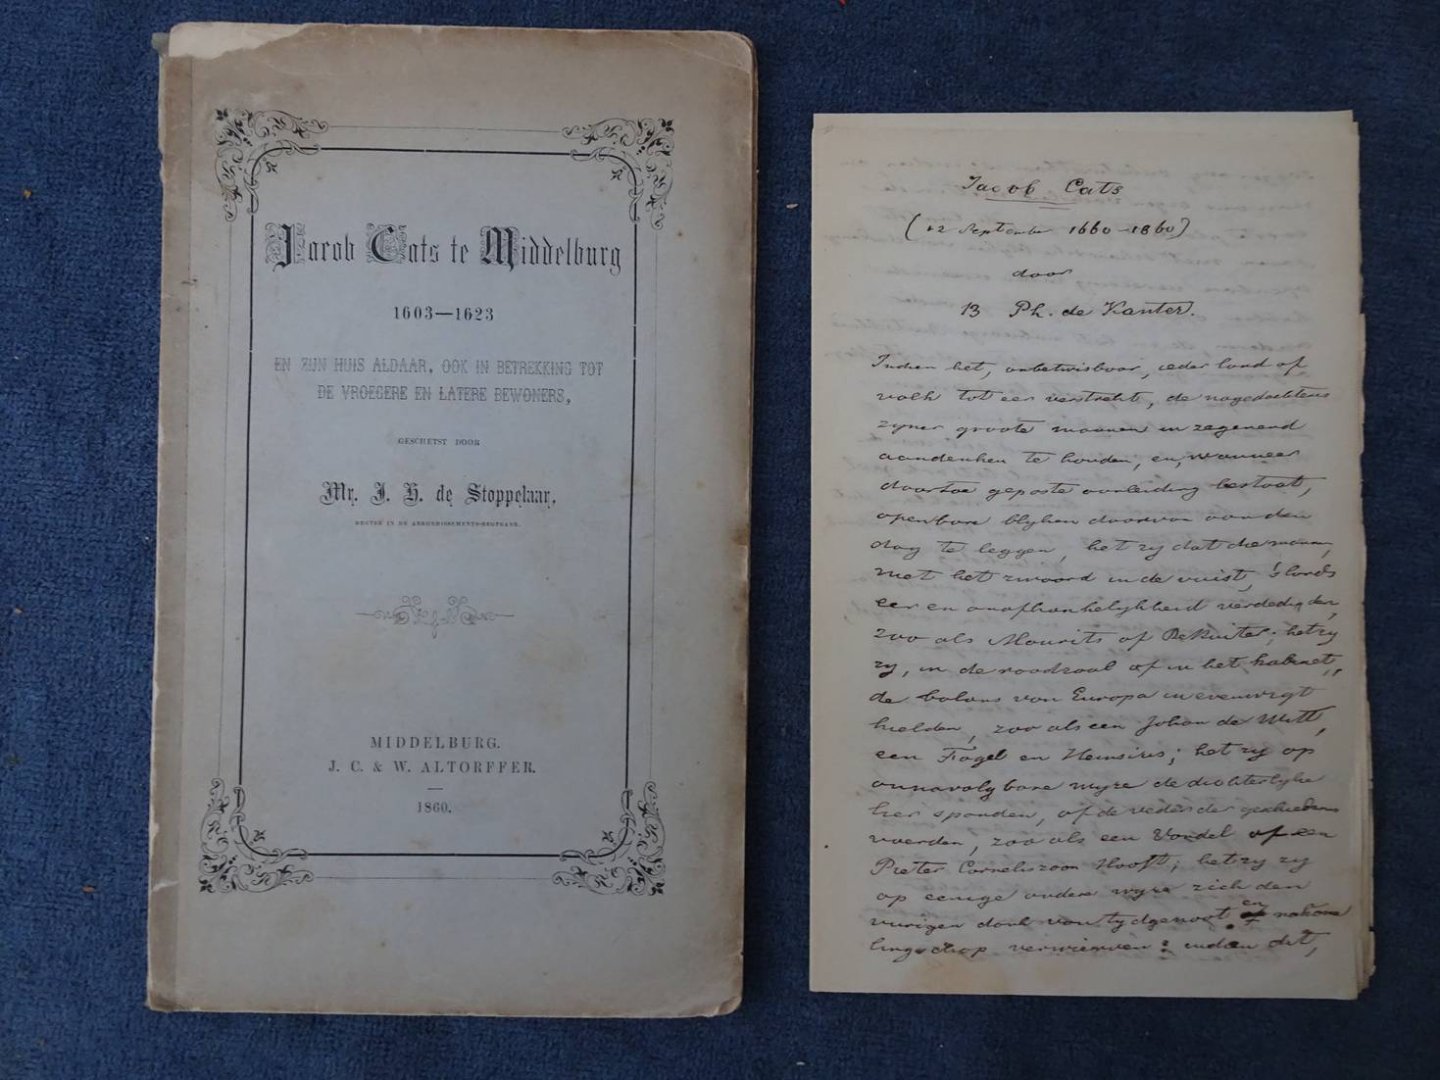 Jacob Cats te Middelburg
1603—1623
EN ZIJN HUIS ALDAAR, OOK IN BETREKKING TOT
DE VROEGERE EN LATERE BEWONERS,
GESCHETST DOOR
Mr. J. H. de Stoppelaar,
REGTER IN DE ARRONDISSEMENTS-REGTBANK.
MIDDELBURG.
J. C. & W. ALTORFFER.
1860.
Jacob Cats
(12 September 1660-1860)
door
Ph. de Kanter.
Indien het, onbetwisbaar, ieder land of
volk tot eer verstrekt, de nagedachtenis
zijner groote mannen in zegenend
aandenken te houden, en, wanneer
daartoe gepaste aanleiding bestaat,
openbare blijken daarvan aan den
dag te leggen, het zij dat die mannen,
met het zwaard in de vuist, 's lands
eer en onafhankelijkheid verdedigden,
zoo als Maurits of De Ruiter; het zij
zij, in de raadzaal of in het kabinet,
de balans van Europa in evenwigt
hielden, zoo als een Johan de Witt,
een Fagel en Heinsius; het zij op
onnavolgbare wijze de dichterlijke
lier spanden, of de veder der geschiedenis
voerden, zoo als een Vondel of een
Pieter Corneliszoon Hooft; het zij zij
op eenige andere wijze zich den
vurigen dank van tijdgenoot en nakome
lingschap verwierven: indien dit,